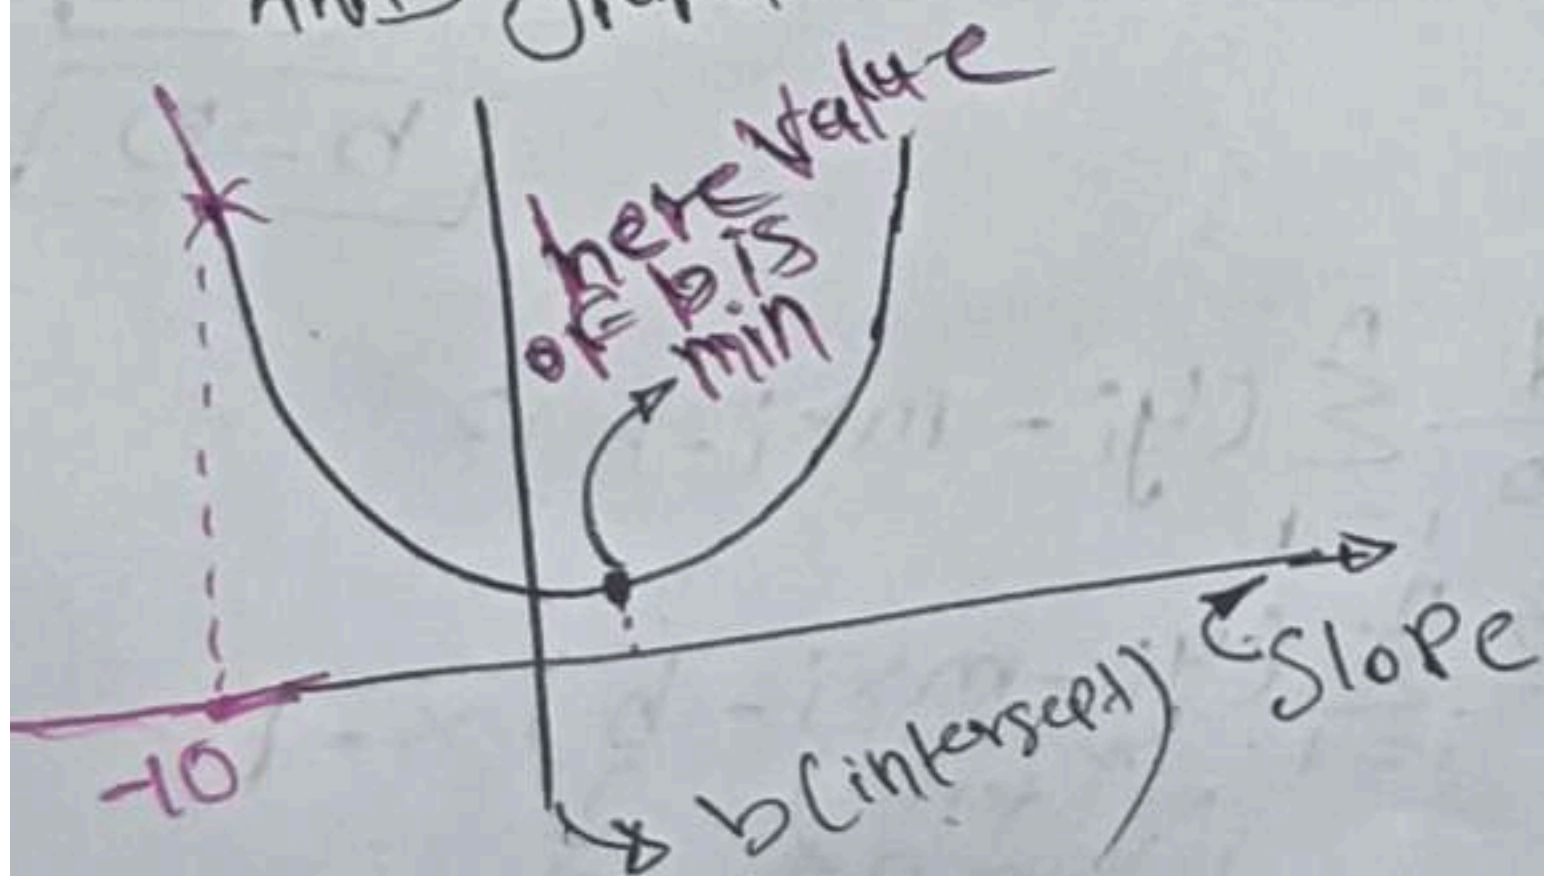 AND
here value
of b is
min
-10
b(intersept)
Slope